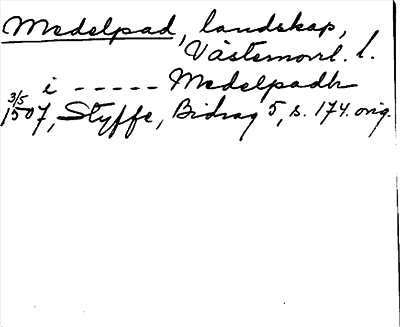 Medelpad, landskap,
Västernorrl. l.
i ----- Medelpadh
3/5 1507, Styffe, Bidrag 5, s. 174. orig.